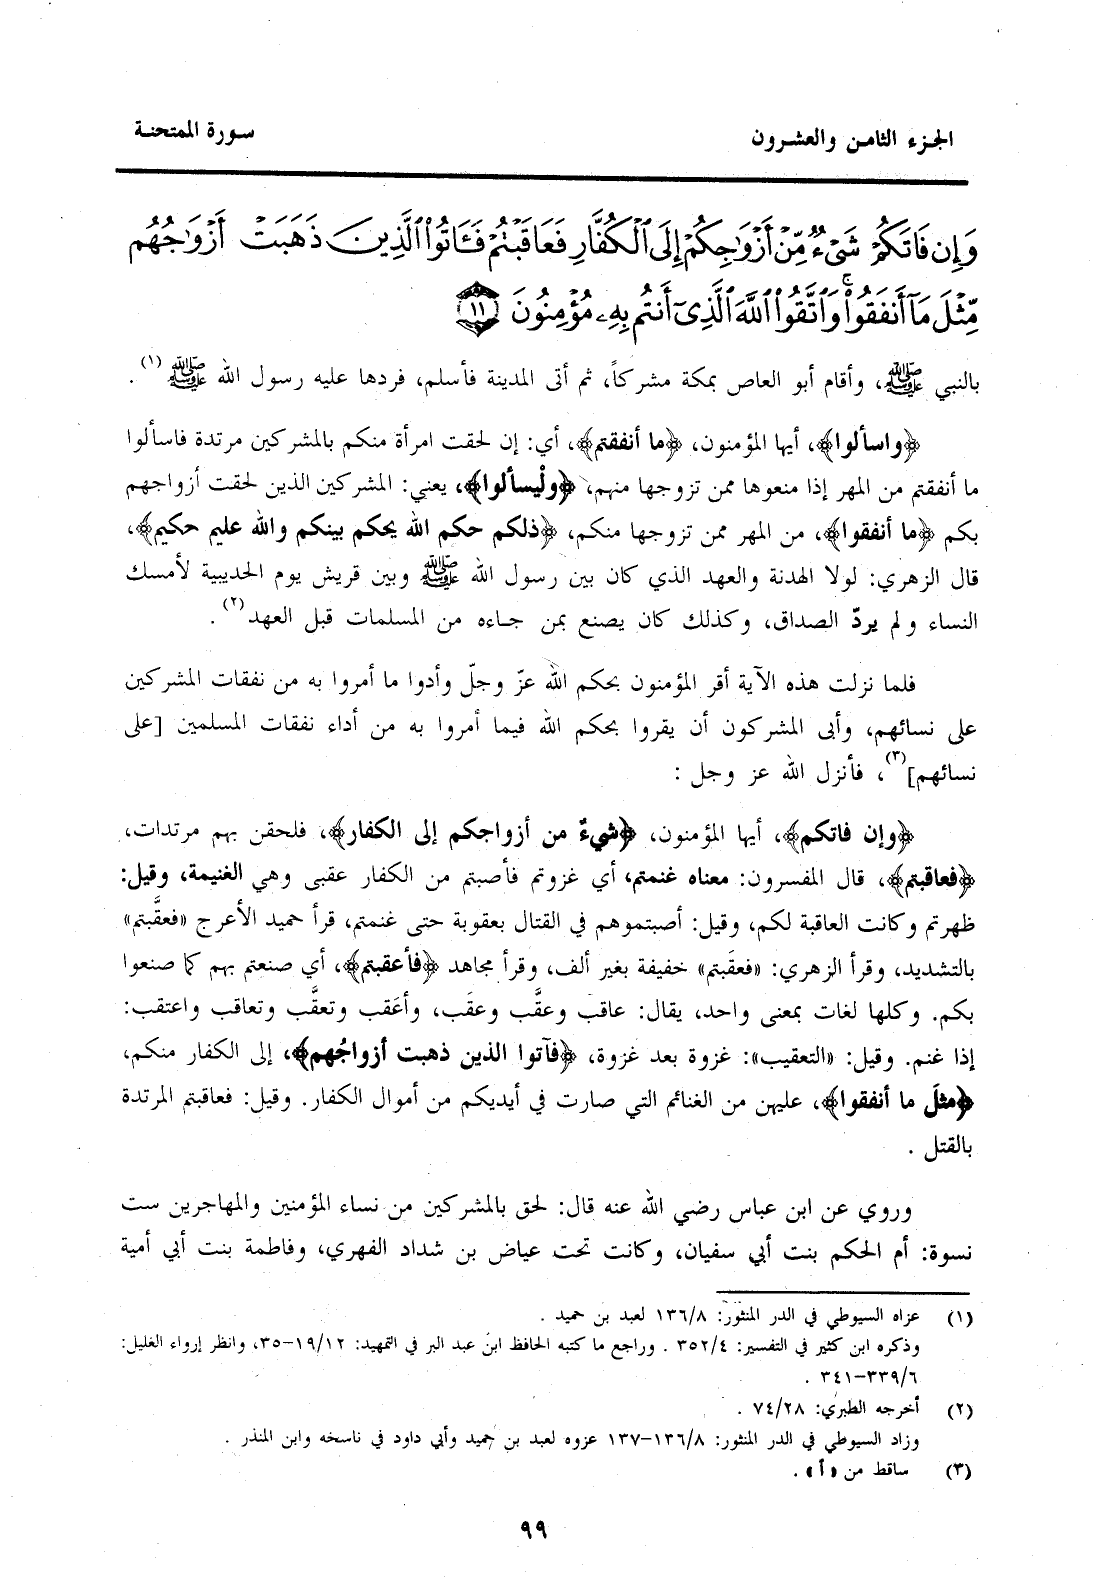 الجزء الثامن والعشرون
سورة الممتحنة
وَإِن فَاتَكُمْ شَىْءٌ مِّنْ أَزْوَٰجِكُمْ إِلَى ٱلْكُفَّارِ فَعَاقَبْتُمْ فَـَٔاتُوا۟ ٱلَّذِينَ ذَهَبَتْ أَزْوَٰجُهُم
مِّثْلَ مَآ أَنفَقُوا۟ ۚ وَٱتَّقُوا۟ ٱللَّهَ ٱلَّذِىٓ أَنتُم بِهِۦ مُؤْمِنُونَ ١١
بالنبي ﷺ، وأقام أبو العاص بمكة مشركاً، ثم أتى المدينة فأسلم، فردها عليه رسول الله ﷺ (١) .
﴿واسألوا﴾، أيها المؤمنون، ﴿ما أنفقتم﴾، أي: إن لحقت امرأة منكم بالمشركين مرتدة فاسألوا
ما أنفقتم من المهر إذا منعوها ممن تزوجها منهم، ﴿ولْيسألوا﴾، يعني: المشركين الذين لحقت أزواجهم
بكم ﴿ما أنفقوا﴾، من المهر ممن تزوجها منكم، ﴿ذلكم حكم الله يحكم بينكم والله عليم حكيم﴾،
قال الزهري: لولا الهدنة والعهد الذي كان بين رسول الله ﷺ وبين قريش يوم الحديبية لأمسك
النساء ولم يردّ الصداق، وكذلك كان يصنع بمن جاءه من المسلمات قبل العهد(٢) .
فلما نزلت هذه الآية أقر المؤمنون بحكم الله عزّ وجلّ وأدوا ما أمروا به من نفقات المشركين
على نسائهم، وأبى المشركون أن يقروا بحكم الله فيما أمروا به من أداء نفقات المسلمين [على
نسائهم](٣)، فأنزل الله عز وجل :
﴿وإن فاتكم﴾، أيها المؤمنون، ﴿شيءٌ من أزواجكم إلى الكفار﴾، فلحقن بهم مرتدات،
﴿فعاقبتم﴾، قال المفسرون: معناه غنمتم، أي غزوتم فأصبتم من الكفار عقبى وهي الغنيمة، وقيل:
ظهرتم وكانت العاقبة لكم، وقيل: أصبتموهم في القتال بعقوبة حتى غنمتم، قرأ حميد الأعرج «فعقَّبتم»
بالتشديد، وقرأ الزهري: «فعقَبتم» خفيفة بغير ألف، وقرأ مجاهد ﴿فأعقبتم﴾، أي صنعتم بهم كما صنعوا
بكم. وكلها لغات بمعنى واحد، يقال: عاقب وعقَّب وعقَب، وأعَقب وتعقَّب وتعاقب واعتقب:
إذا غنم. وقيل: «التعقيب»: غزوة بعد غزوة، ﴿فآتوا الذين ذهبت أزواجُهم﴾، إلى الكفار منكم،
﴿مثلَ ما أنفقوا﴾، عليهن من الغنائم التي صارت في أيديكم من أموال الكفار. وقيل: فعاقبتم المرتدة
بالقتل .
وروي عن ابن عباس رضي الله عنه قال: لحق بالمشركين من نساء المؤمنين والمهاجرين ست
نسوة: أم الحكم بنت أبي سفيان، وكانت تحت عياض بن شداد الفهري، وفاطمة بنت أبي أمية
(١) عزاه السيوطي في الدر المنثور: ١٣٦/٨ لعبد بن حميد .
وذكره ابن كثير في التفسير: ٣٥٢/٤ . وراجع ما كتبه الحافظ ابن عبد البر في التمهيد: ١٩/١٢-٣٥، وانظر إرواء الغليل:
٣٣٩/٦-٣٤١ .
(٢) أخرجه الطبري: ٧٤/٢٨ .
وزاد السيوطي في الدر المنثور: ١٣٦/٨-١٣٧ عزوه لعبد بن حميد وأبي داود في ناسخه وابن المنذر .
(٣) ساقط من «أ» .
٩٩